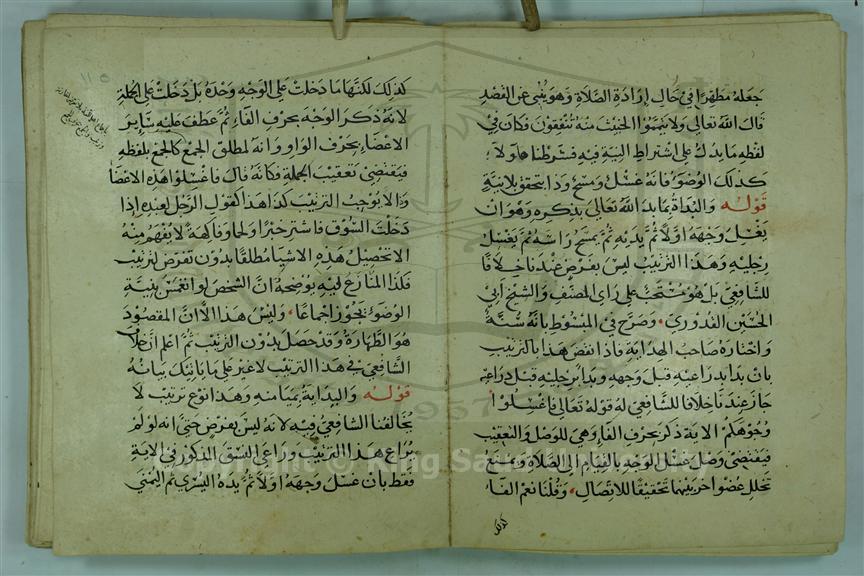 جعله مطهرا في حال إرادة الصلاة وهو ينبي عن القصد
قال الله تعالى ولا تيمموا الخبيث منه تنفقون فكان في
لفظه ما يدل على اشتراط النية فيه فشرطناها ولا
كذلك الوضوء فانه غسل ومسح وذا يتحقق بلا نية
قوله والبداة بما بدا الله تعالى بذكره وهو ان
يغسل وجهه اولا ثم يديه ثم يمسح راسه ثم يغسل
رجليه وهذا الترتيب ليس بفرض عندنا خلافا
للشافعي بل هو مستحب على راي المصنف والشيخ ابي
الحسين القدوري وصرح في المبسوط بانه سنة
واختاره صاحب الهداية فاذا انتقض هذا بالترتيب
بان بدا بذراعيه قبل وجهه وبدا برجليه قبل ذراعيه
جاز عندنا خلافا للشافعي له قوله تعالى فاغسلوا
وجوهكم الاية ذكر بحرف الفاء وهي للوصل والتعقيب
فيقتضي وصل غسل الوجه بالقيام الى الصلاة ويمنع
تخلل عضو اخر بينهما تحقيقا للاتصال وقلنا نعم الفاء
كذلك
١١٥
كذلك لكنها ما دخلت على الوجه وحده بل دخلت على الجملة
لانه ذكر الوجه بحرف الفاء ثم عطف عليه سائر
الاعضاء بحرف الواو وانه لمطلق الجمع كالجمع بلفظه
فيقتضي تعقيب الجملة فكانه قال فاغسلوا هذه الاعضا
وذا لا يوجب الترتيب كذا هذا كقول الرجل لعبده إذا
دخلت السوق فاشتر خبزا ولحما وفاكهة لا يفهم منه
الا تحصيل هذه الاشيا مطلقا بدون تعرض لترتيب
فكذا المتنازع فيه يوضحه ان الشخص لو انغمس بنية
الوضوء يجوز اجماعا وليس هذا الا ان المقصود
هو الطهارة وقد حصل بدون الترتيب ثم اعلم ان خلاف
الشافعي في هذا الترتيب لا غير على ما ياتيك بيانه
قوله والبداية بميامنه وهذا نوع ترتيب لا
يخالفنا الشافعي فيه لانه ليس بفرض حتى انه لو لم
يراع هذا الترتيب وراعى النسق المذكور في الاية
فقط بان غسل وجهه اولا ثم يده اليسرى ثم اليمنى